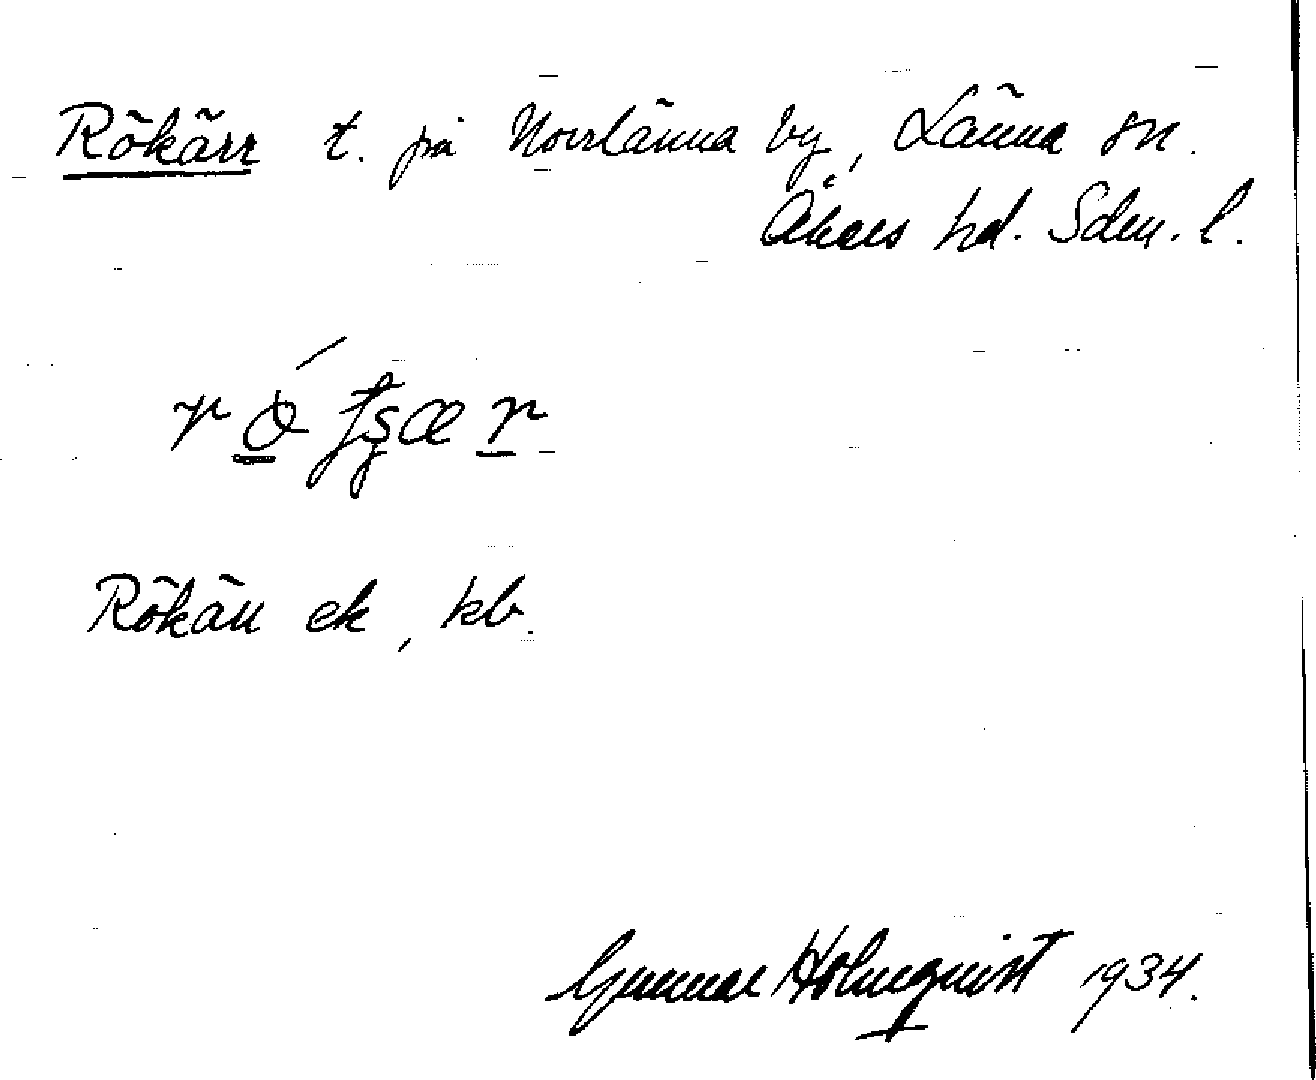 Rökärr t. på Norrlänna by, Länna sn.
Åkers hd. Sdm. l.
Rökärr ek, kb.
Gunnar Holmquist 1934.